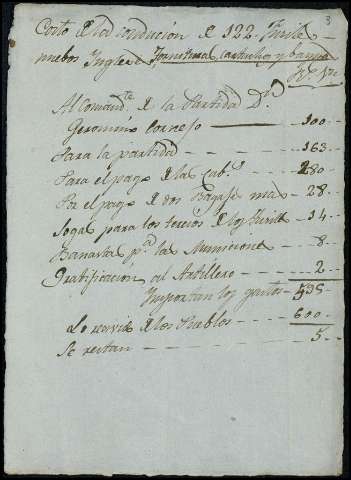 3
Costo de la conducion de 122 Fusile
nuebos Ingleses
Al Comandte de la Partida Dn
Geronimo Cornejo 100
Para la partida 163
Para el pago de las cabs 280
Por el pago de dos Bagajes mas 28
Sogas para los tercios de los fusils 14
Banastas pa las Municiones 8
Gratificacion al Artillero 2
Importan los gastos
Lo de los Pueblos 600
Se restan 5